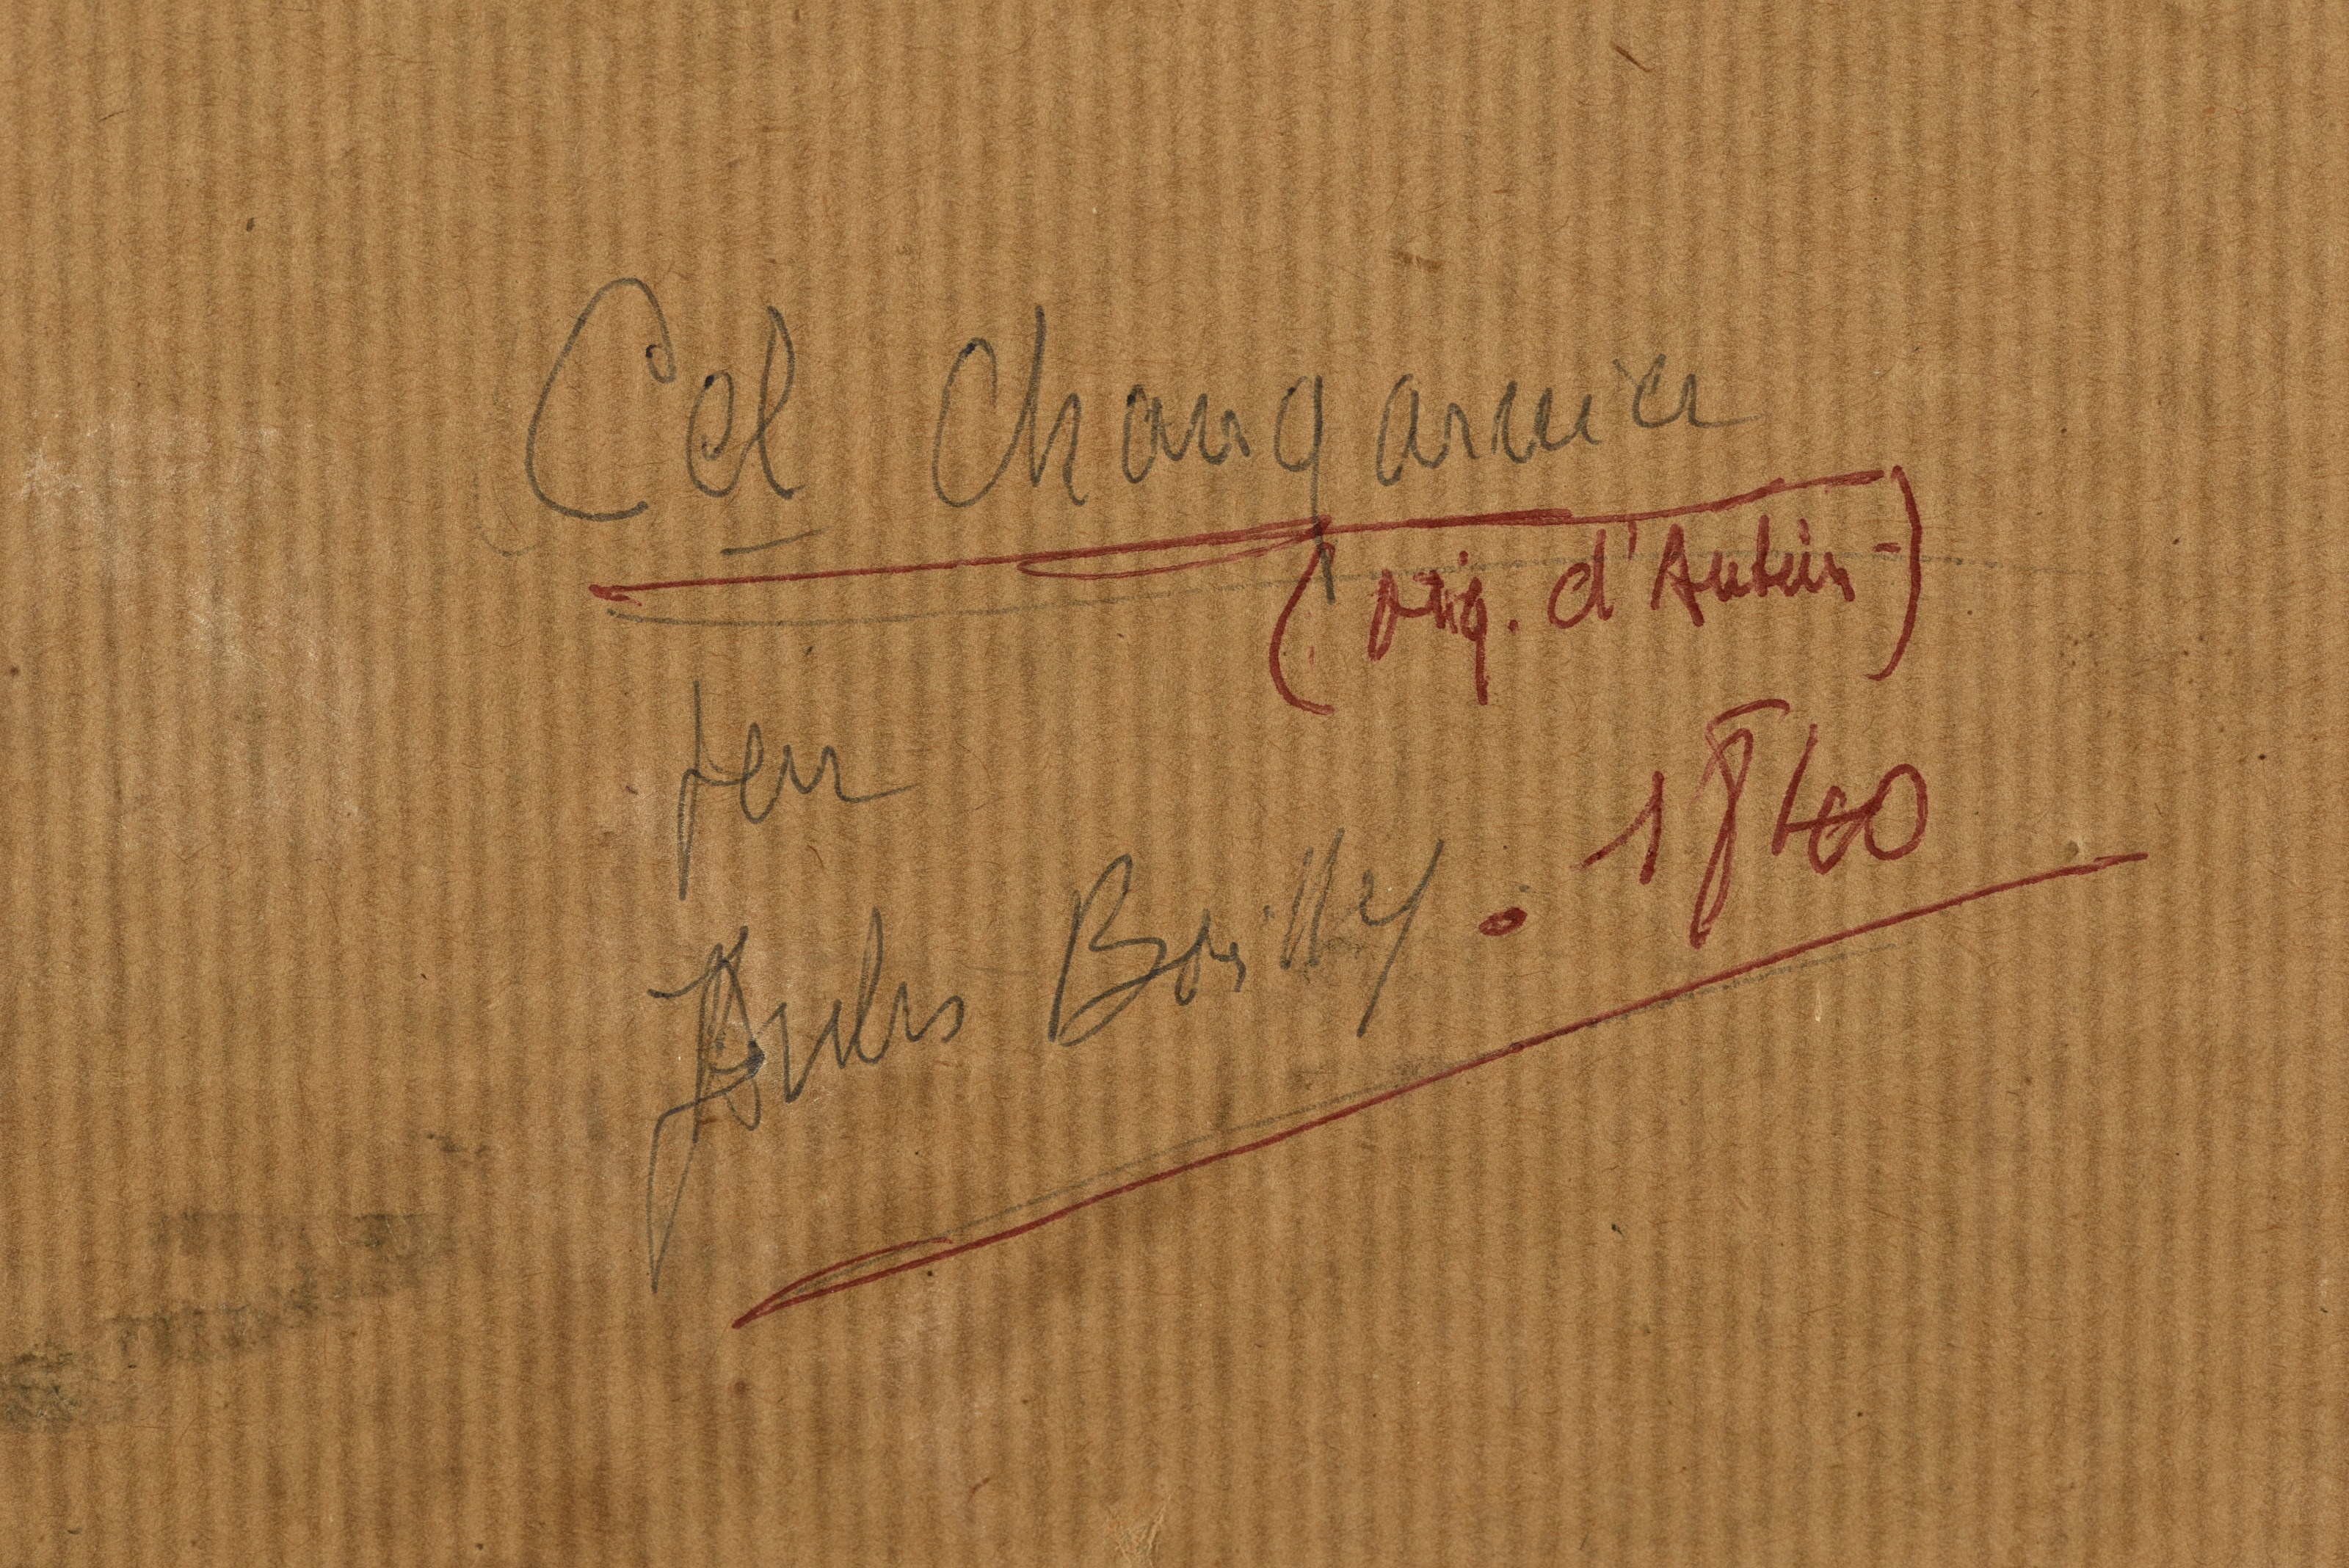 Cel Changarnier
(orig. d'Autun-)
par
Jules Boilly. 1840